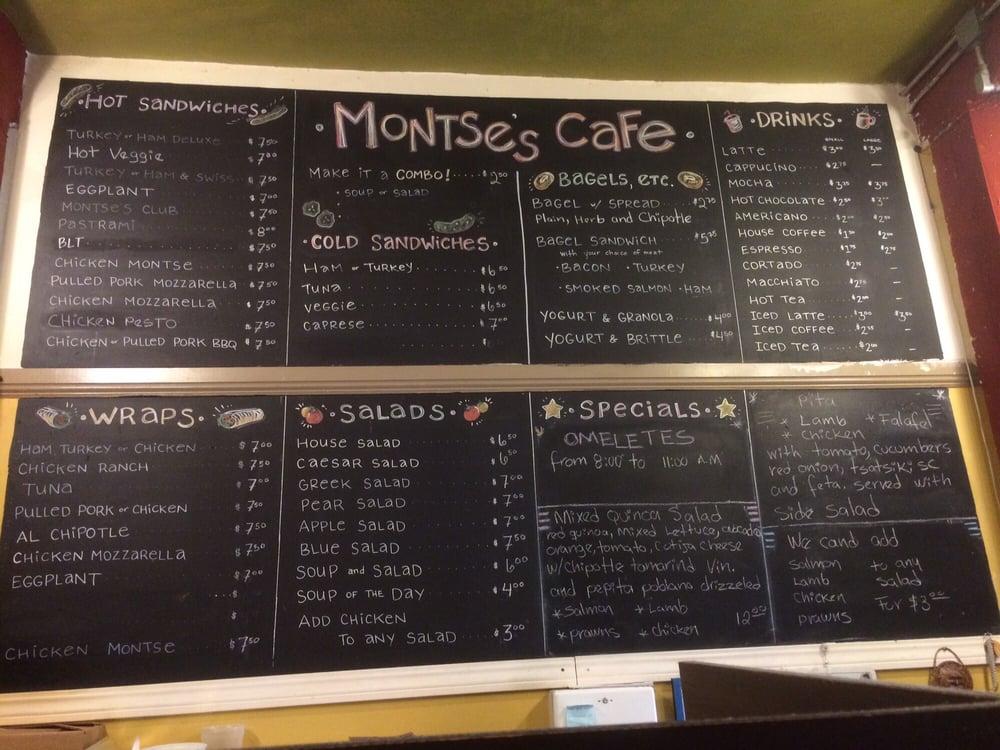 HOT SANDWICHES
TURKEY or HAM DELUXE $7.50
Hot Veggie $7.00
TURKEY or HAM & SWISS $7.50
EGGPLANT $7.00
MONTSE'S CLUB $7.50
PASTRAMI $8.00
BLT $7.50
CHICKEN MONTSE $7.50
PULLED PORK MOZZARELLA $7.50
CHICKEN MOZZARELLA $7.50
CHICKEN PESTO $7.50
CHICKEN or PULLED PORK BBQ $7.50
MONTSE'S CAFE
MAKE IT A COMBO! $2.50
• SOUP or SALAD
• COLD SANDWICHES •
HAM or TURKEY $6.50
TUNA $6.50
VEGGIE $6.50
CAPRESE $7.00
BAGELS, ETC.
BAGEL w/ SPREAD $2.75
Plain, Herb and Chipotle
BAGEL SANDWICH $5.25
with your choice of meat
• BACON • TURKEY
• SMOKED SALMON • HAM
YOGURT & GRANOLA $4.00
YOGURT & BRITTLE $4.50
• DRINKS •
SMALL LARGE
LATTE $3.00
CAPPUCINO $2.75 —
MOCHA $3.25 $3.75
HOT CHOCOLATE $2.50
AMERICANO $2.00
HOUSE COFFEE
ESPRESSO $1.75
CORTADO —
MACCHIATO —
HOT TEA $2.00 —
ICED LATTE $3.00
ICED COFFEE —
ICED TEA $2.00 —
• WRAPS •
HAM TURKEY or CHICKEN $7.00
CHICKEN RANCH $7.50
TUNA $7.00
PULLED PORK or CHICKEN $7.50
AL CHIPOTLE $7.50
CHICKEN MOZZARELLA $7.50
EGGPLANT $7.00
$
$
CHICKEN MONTSE $7.50
• SALADS •
HOUSE SALAD $6.50
CAESAR SALAD $6.50
GREEK SALAD $7.00
PEAR SALAD $7.00
APPLE SALAD $7.00
BLUE SALAD $7.50
SOUP and SALAD $6.00
SOUP OF THE DAY $4.00
ADD CHICKEN
TO ANY SALAD $3.00
• SPECIALS •
OMELETES
from 8:00 to 11:00 A.M
Mixed Quinoa Salad
red quinoa, Mixed Lettuce, avocado
orange, tomato, Cotija cheese
w/Chipotle tamarind Vin.
and pepita poblano drizzeled
* Salmon * Lamb
* prawns * chicken 12.00
Pita
* Lamb * Falafel
* chicken
with tomato, cucumbers
red onion, tsatsiki sc
and feta. served with
Side Salad
We cand add
Salmon to any
Lamb Salad
Chicken For $3.00
prawns